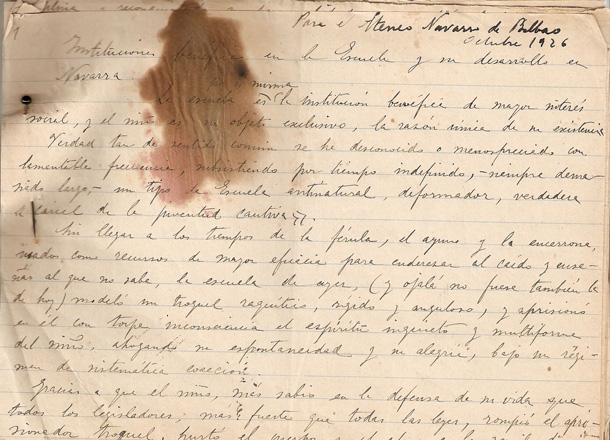 Para el Ateneo Navarro de Bilbao
Octubre 1926
Instituciones benéficas en la Escuela y su desarrollo en
Navarra
misma
La escuela es la institución benéfica de mayor interés
social, y el niño es su objeto exclusivo, la razón única de su existencia
Verdad tan de sentido común se he desconocido o menospreciado con
lamentable frecuencia, subsistiendo por tiempo indefinido, siempre dema-
siado largo, un tipo de Escuela antinatural, deformador, verdadera
cárcel de la juventud cautiva.
Sin llegar a los tiempos de la férula, el ayuno y la encerrona,
usados como recursos de mayor eficacia para enderezar al caído y ense-
ñar al que no sabe, la escuela de ayer, (y ojalá no fuese también la
de hoy) modeló un troquel raquítico, rígido y anguloso, y aprisionó
en él con torpe inconsciencia el espíritu inquieto y multiforme
del niño, ahogando su espontaneidad y su alegría, bajo un régi-
men de sistemática coacción.
Gracias a que el niño, más sabio en la defensa de su vida que
todos los legisladores; mas fuerte que todas las leyes, rompió el apri-
sionador troquel,